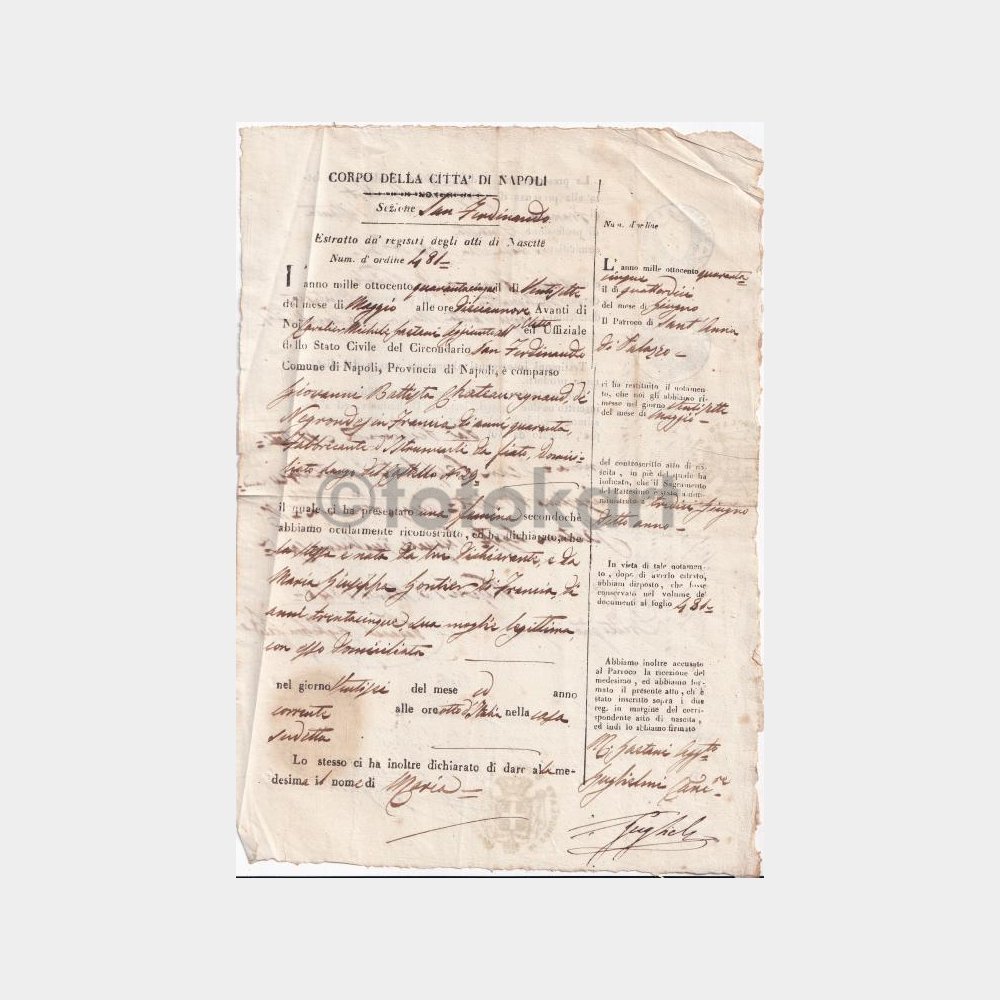 CORPO DELLA CITTA' DI NAPOLI
Sezione San Ferdinando
Estratto da' registri degli atti di Nascite
Num. d'ordine 481=
L' anno mille ottocento quarantacinque il dì Ventisette
del mese di Maggio alle ore Diciannove Avanti di
Noi Cavalier Michele Gaetani Aggiunto ed Uffiziale
dello Stato Civile del Circondario San Ferdinando
Comune di Napoli, Provincia di Napoli, è comparso
Giovanni Battista Chateauregnaud, de
Negronde in Francia di anni quaranta,
Fabbricante d'Istrumenti da fiato, domici-
liato
il quale ci ha presentato una femina secondochè
abbiamo ocularmente riconosciuto, ed ha dichiarato, che
la stessa è nata da lui Dichiarante, e da
Maria Giuseppa Gontier di Francia, di
anni trentacinque sua moglie legittima
con esso domiciliata
nel giorno Ventisei del mese ed anno
corrente alle ore otto d'Italia nella casa
sudetta
Lo stesso ci ha inoltre dichiarato di dare alla me-
desima il nome di Maria=
Num. d'ordine
L' anno mille ottocento quaranta
cinque
il dì quattordici
del mese di Giugno
Il Parroco di Sant'Anna
di Palazzo=
ci ha restituito il notamen-
to, che noi gli abbiamo ri-
messe nel giorno Ventisette
del mese di Maggio=
del controscritto atto di na-
scita, in piè del quale ha
indicato, che il Sagramento
del Battesimo è stato ammi-
nistrato a tredici Giugno
detto anno=
In vista di tale notamen-
to, dopo di averlo cifrato,
abbiam disposto, che fosse
conservato nel volume de'
documenti al foglio 481=
Abbiamo inoltre accusato
al Parroco la ricezione del
medesimo, ed abbiamo for-
mato il presente atto, ch'è
stato inscritto sopra i due
reg. in margine del corri-
spondente atto di nascita,
ed indi lo abbiamo firmato
M. Gaetani Agg.to
Guglielmi Canc.re
©fotokart